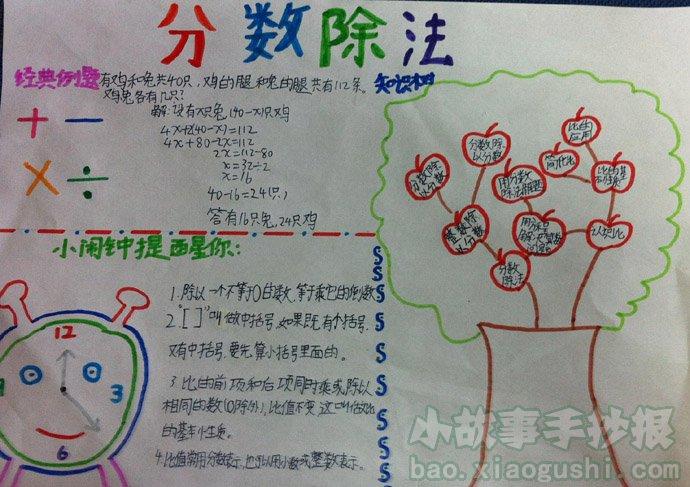 分数除法
经典例题
有鸡和兔共40只，鸡的腿和兔的腿共有112条。
鸡兔各有几只？
解：设有X只兔，(40-X)只鸡
4X+2(40-X)=112
4X+80-2X=112
2X=112-80
X=32÷2
X=16
40-16=24(只)
答：有16只兔，24只鸡
+ -
× ÷
知识树
比的应用
分数除以分数
简化比
分数除以分数
用分数除法解题
比的基本性质
整数除以分数
认识比
分数除法
小闹钟提醒你：
1.除以一个不等于0的数，等于乘它的倒数
2."[ ]"叫做中括号，如果既有小括号，
又有中括号，要先算小括号里面的。
3.比的前项和后项同时乘或除以
相同的数(0除外)，比值不变，这叫做比
的基本性质。
4.比值常用分数表示，也可以用小数或整数表示。
12
3
6
9
小故事手抄报
bao.xiaogushi.com